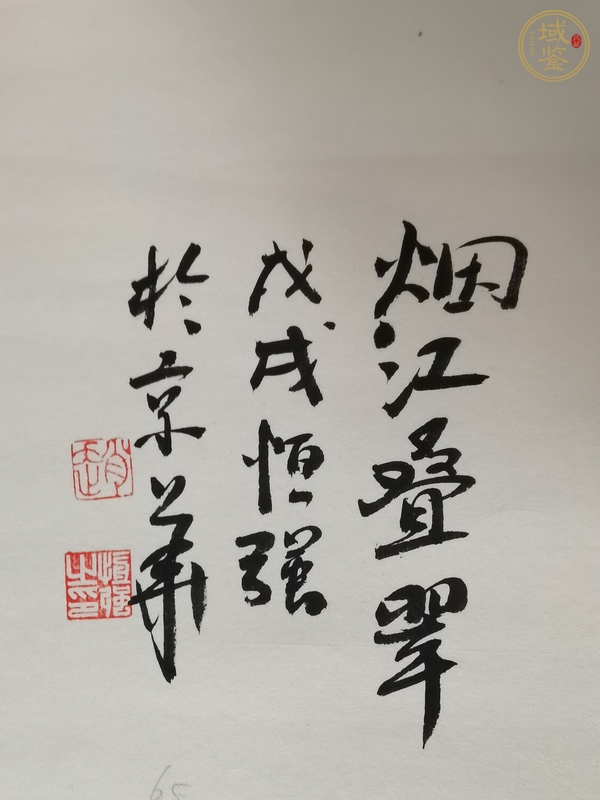 烟江叠翠
戊戌恒强
於京华
趙
恒强之印
域鉴
65